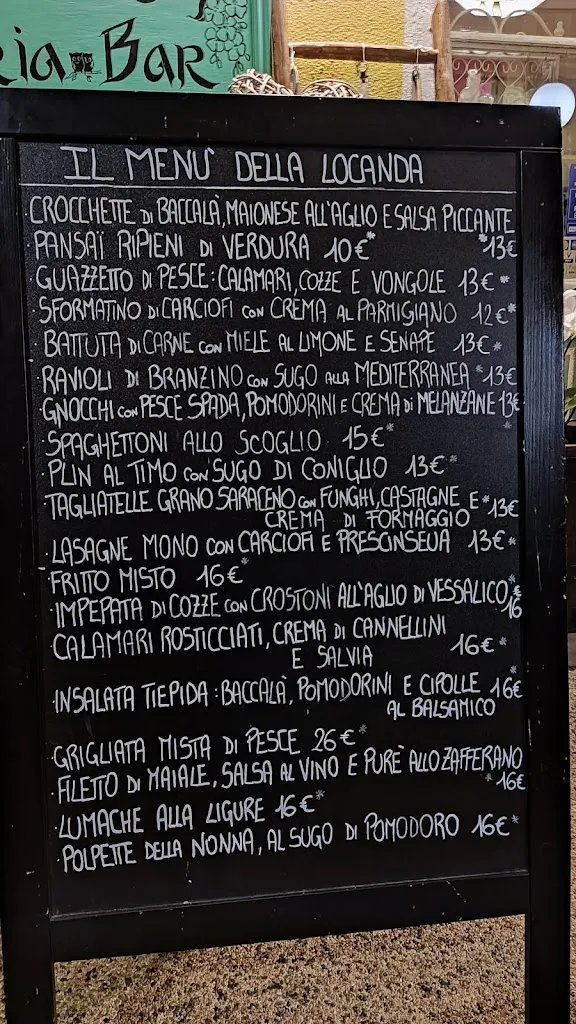 ria Bar
IL MENÙ DELLA LOCANDA
·CROCCHETTE DI BACCALÀ, MAIONESE ALL'AGLIO E SALSA PICCANTE
*13€
·PANSAÏ RIPIENI DI VERDURA 10€*
·GUAZZETTO DI PESCE: CALAMARI, COZZE E VONGOLE 13€*
·SFORMATINO DI CARCIOFI CON CREMA AL PARMIGIANO 12€*
·BATTUTA DI CARNE CON MIELE AL LIMONE E SENAPE 13€*
·RAVIOLI DI BRANZINO CON SUGO ALLA MEDITERRANEA *13€
·GNOCCHI CON PESCE SPADA, POMODORINI E CREMA DI MELANZANE 13€
*
·SPAGHETTONI ALLO SCOGLIO 15€*
·PLIN AL TIMO CON SUGO DI CONIGLIO 13€*
·TAGLIATELLE GRANO SARACENO CON FUNGHI, CASTAGNE E *13€
CREMA DI FORMAGGIO
·LASAGNE MONO CON CARCIOFI E PRESCINSEUA 13€*
·FRITTO MISTO 16€*
·IMPEPATA DI COZZE CON CROSTONI ALL'AGLIO DI VESSALICO, €16
·CALAMARI ROSTICCIATI, CREMA DI CANNELLINI 16€*
E SALVIA
·INSALATA TIEPIDA: BACCALÀ, POMODORINI E CIPOLLE 16€*
AL BALSAMICO
·GRIGLIATA MISTA DI PESCE 26€*
·FILETTO DI MAIALE, SALSA AL VINO E PURÈ ALLO ZAFFERANO
*16€
·LUMACHE ALLA LIGURE 16€*
·POLPETTE DELLA NONNA, AL SUGO DI POMODORO 16€*